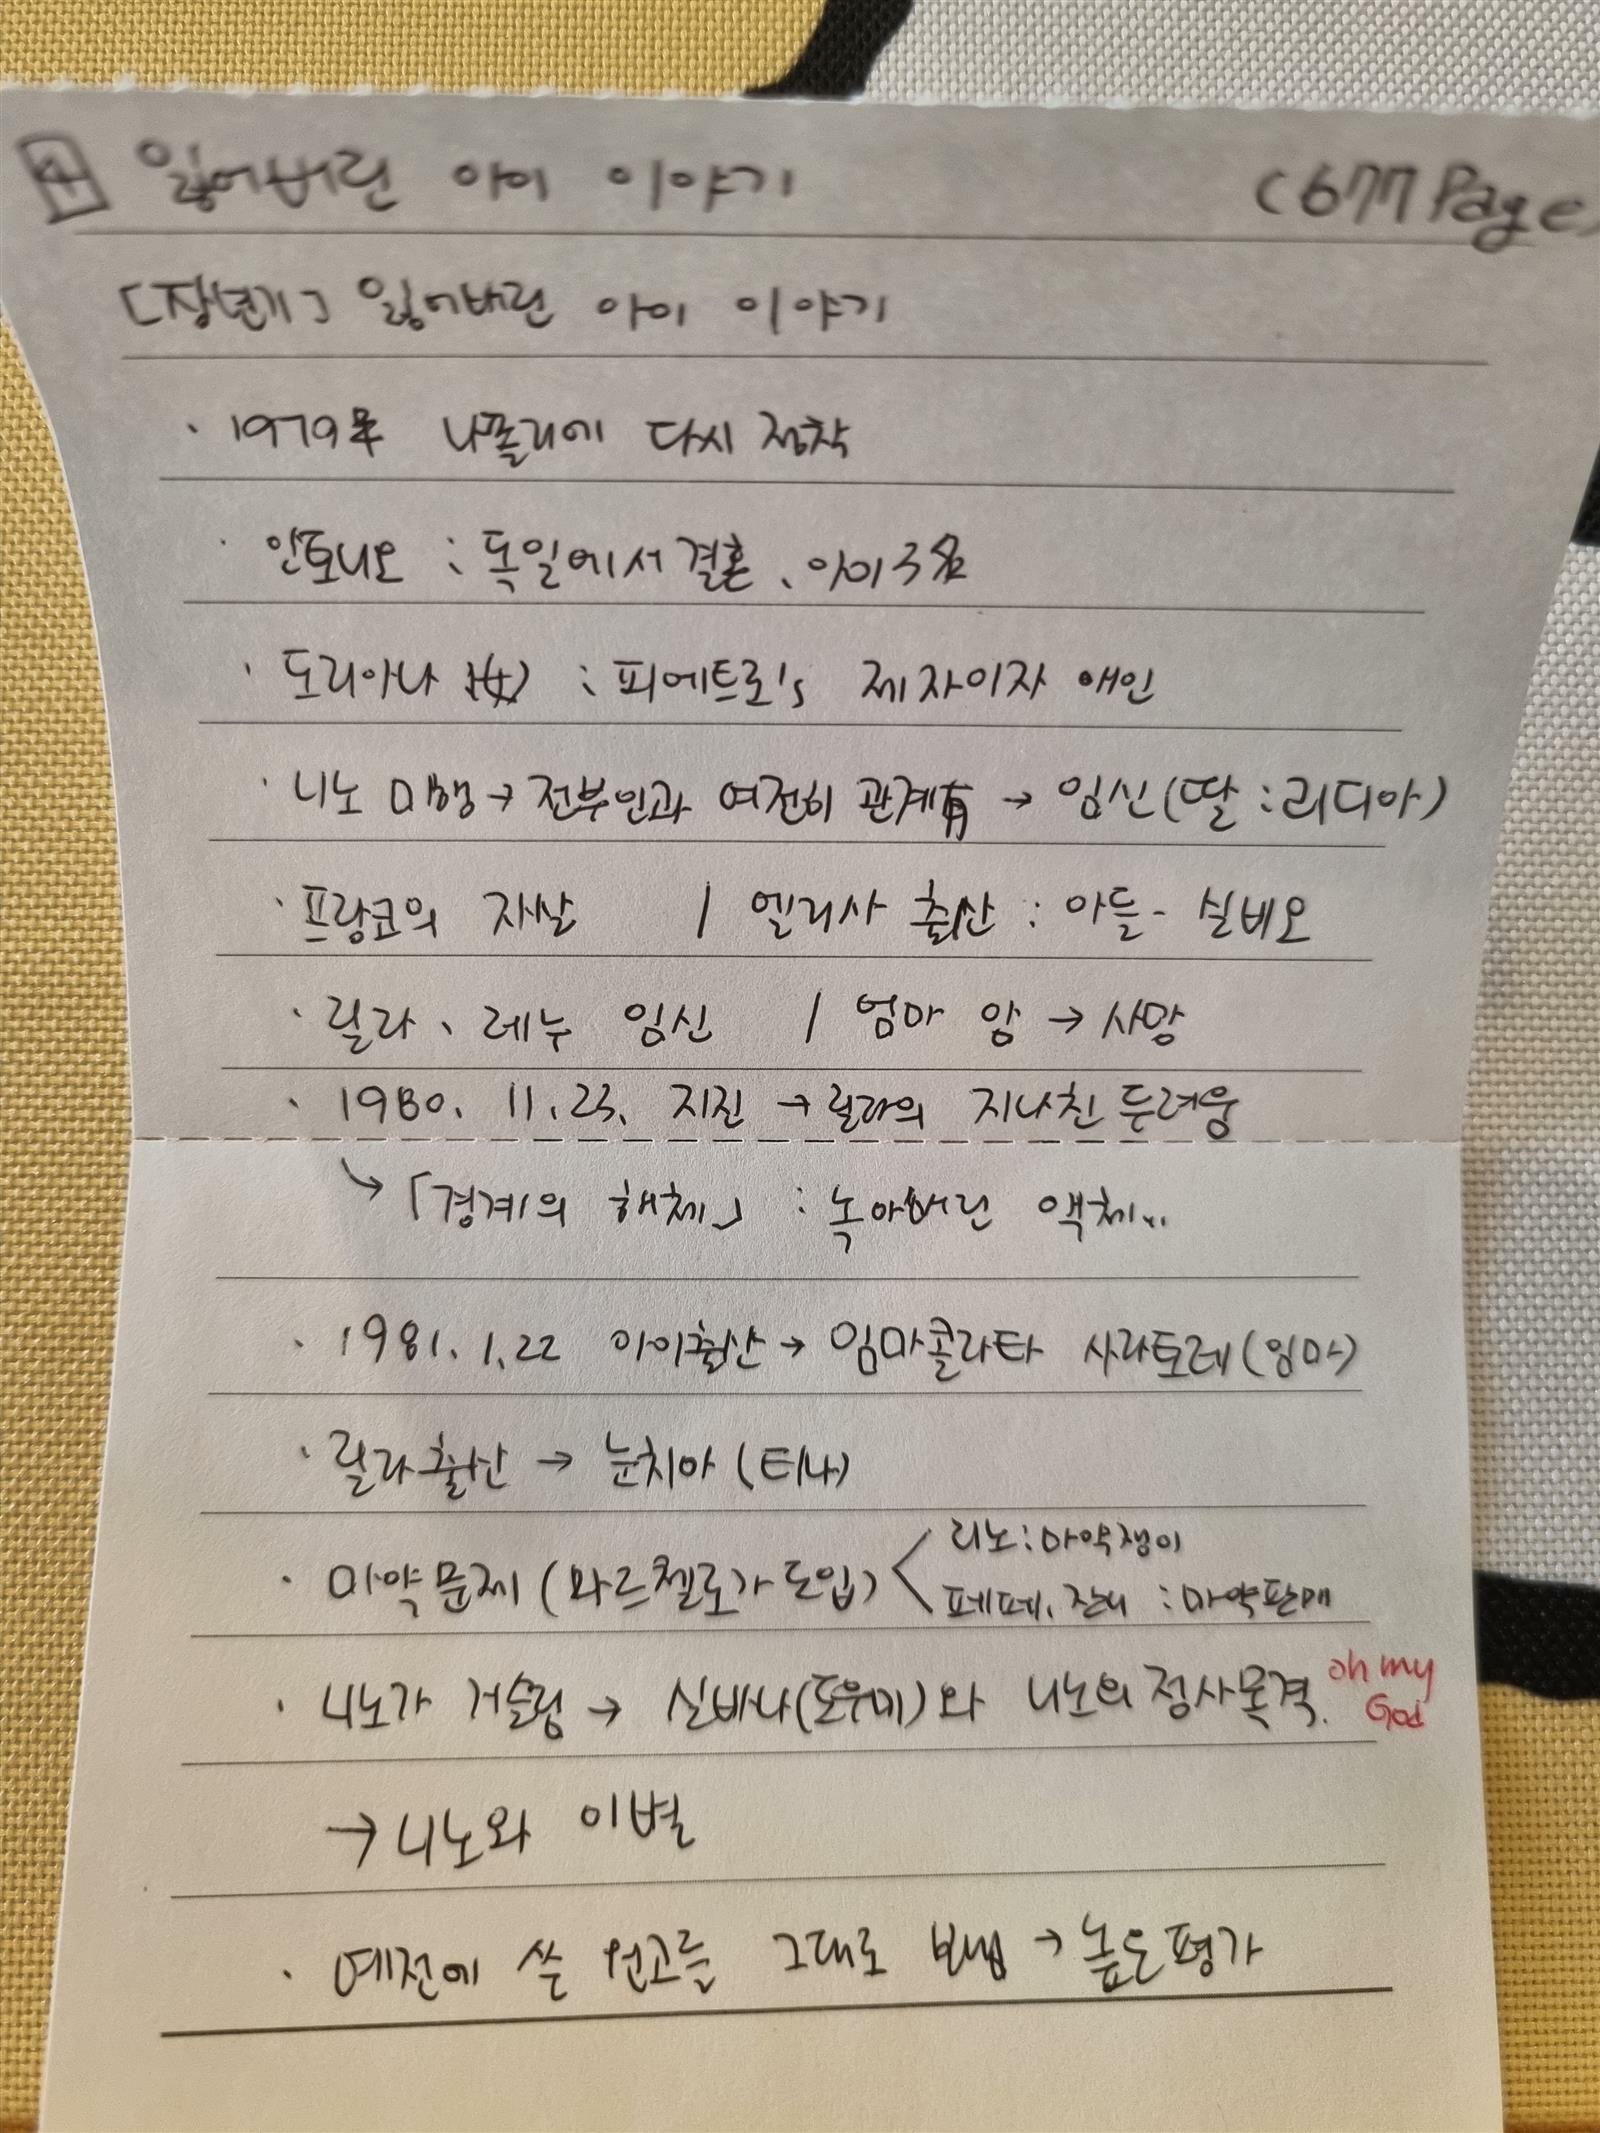 4 잃어버린 아이 이야기 (677 Page)
[장년기] 잃어버린 아이 이야기
· 1979年 나폴리에 다시 정착
· 안토니오 : 독일에서 결혼、아이 3名
· 도리아나 (女) : 피에트로's 제자이자 애인
· 니노 미행 → 전부인과 여전히 관계有 → 임신 (딸 : 리디아)
· 프랑코의 자살 / 엘리사 출산 : 아들 - 실비오
· 릴라、레누 임신 / 엄마 암 → 사망
· 1980. 11. 23. 지진 → 릴라의 지나친 두려움
↘ 「경계의 해체」 : 녹아버린 액체...
· 1981. 1. 22 아이출산 → 임마콜라타 사라토레 (임마)
· 릴라 출산 → 눈치아 (티나)
· 마약문제 (마르첼로가 도입) < 리노 : 마약쟁이
페페, 잔니 : 마약판매
· 니노가 거슬림 → 실바나(도우미)와 니노의 정사 목격. oh my God
→ 니노와 이별
· 예전에 쓴 원고를 그대로 보냄 → 높은 평가